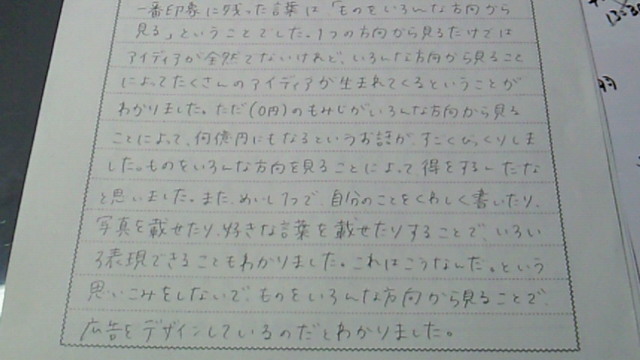 一番印象に残った言葉は「ものをいろんな方向から
見る」ということでした。1つの方向から見るだけでは
アイディアが全然でないけれど、いろんな方向から見ること
によってたくさんのアイディアが生まれてくるということが
わかりました。ただ(0円)のもみじがいろんな方向から見る
ことによって、何億円にもなるというお話が、すごくびっくりしま
した。ものをいろんな方向を見ることによって、得をするんだな
と思いました。また、めいし1つで、自分のことをくわしく書いたり、
写真を載せたり、好きな言葉を載せたりすることで、いろい
ろ表現できることもわかりました。これはこうなんだ。という
思いこみをしないで、ものをいろんな方向から見ることで、
広告をデザインしているのだとわかりました。